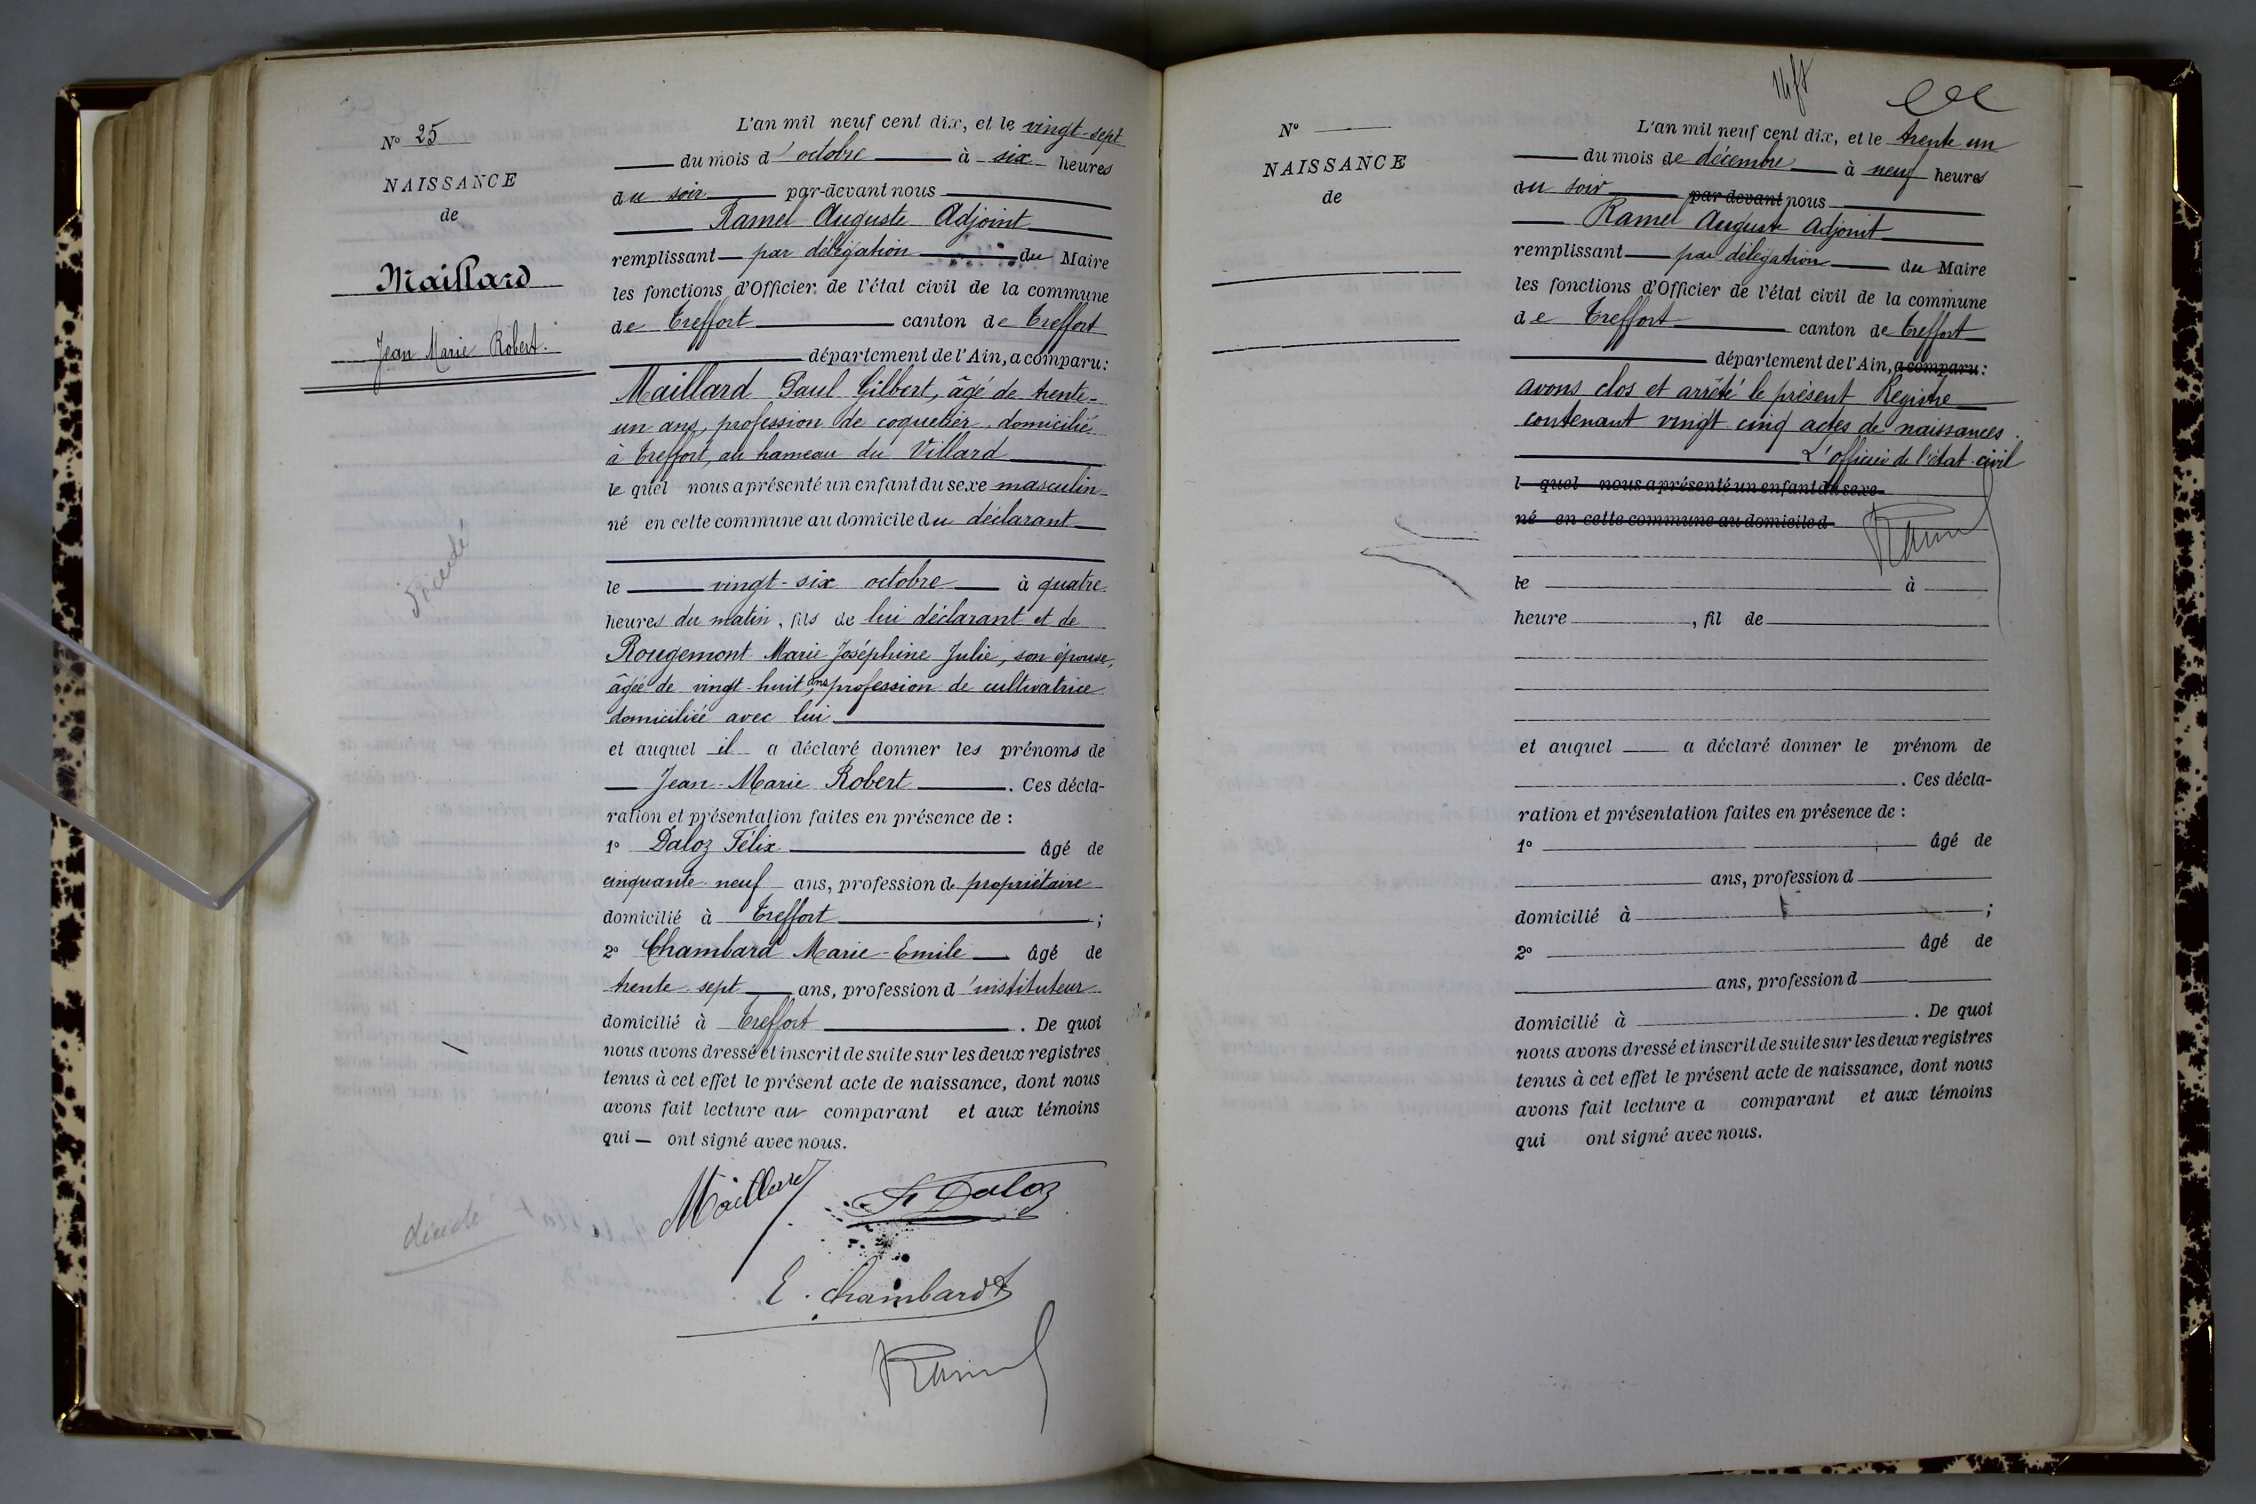 N° 25
NAISSANCE
de
Maillard
Jean Marie Robert.
décédé
décédé
L'an mil neuf cent dix, et le vingt-sept
du mois d'octobre à six heures
du soir par-devant nous
Ramel Auguste Adjoint
remplissant par délégation du Maire
les fonctions d'Officier de l'état civil de la commune
de Treffort canton de Treffort
département de l'Ain, a comparu:
Maillard Paul Gilbert, âgé de trente-
un ans, profession de coquetier domicilié
à Treffort, au hameau du Villard
le quel nous a présenté un enfant du sexe masculin
né en cette commune au domicile du déclarant
le vingt-six octobre à quatre
heures du matin, fils de lui déclarant et de
Rougemont Marie Joséphine Julie, son épouse,
âgée de vingt-huit ans, profession de cultivatrice
domiciliée avec lui
et auquel il a déclaré donner les prénoms de
Jean-Marie Robert. Ces décla-
ration et présentation faites en présence de :
1° Daloz Félix âgé de
cinquante-neuf ans, profession de propriétaire
domicilié à Treffort ;
2° Chambard Marie-Emile âgé de
trente-sept ans, profession d'instituteur
domicilié à Treffort. De quoi
nous avons dressé et inscrit de suite sur les deux registres
tenus à cet effet le présent acte de naissance, dont nous
avons fait lecture au comparant et aux témoins
qui — ont signé avec nous.
Maillard F Daloz
E. Chambard
Ramel
N°
NAISSANCE
de
L'an mil neuf cent dix, et le trente un
du mois de décembre à neuf heures
du soir par devant nous
Ramel Auguste Adjoint
remplissant par délégation du Maire
les fonctions d'Officier de l'état civil de la commune
de Treffort canton de Treffort
département de l'Ain, a comparu:
avons clos et arrêté le présent Registre
contenant vingt cinq actes de naissances.
L'officier de l'état-civil
l quel nous a présenté un enfant du sexe
né en cette commune au domicile d
Ramel
le à
heure , fil de
et auquel a déclaré donner le prénom de
. Ces décla-
ration et présentation faites en présence de :
1° âgé de
ans, profession d
domicilié à ;
2° âgé de
ans, profession d
domicilié à . De quoi
nous avons dressé et inscrit de suite sur les deux registres
tenus à cet effet le présent acte de naissance, dont nous
avons fait lecture a comparant et aux témoins
qui ont signé avec nous.